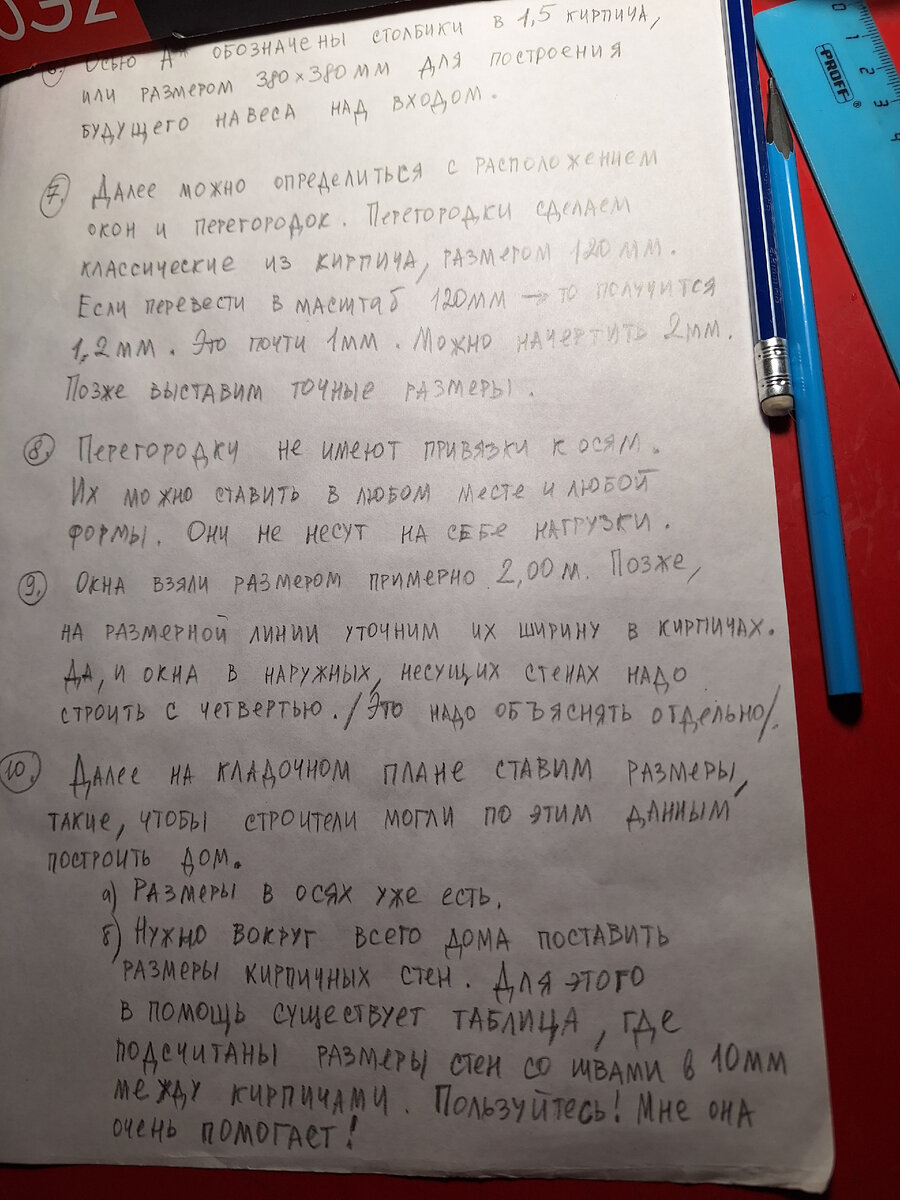 ОЭ2
Осью А** обозначены столбики в 1,5 кирпича,
или размером 380×380мм для построения
будущего навеса над входом.
7. Далее можно определиться с расположением
окон и перегородок. Перегородки сделаем
классические из кирпича, размером 120мм.
Если перевести в масштаб 120мм → то получится
1,2мм. Это почти 1мм. Можно начертить 2мм.
Позже выставим точные размеры.
8. Перегородки не имеют привязки к осям.
Их можно ставить в любом месте и любой
формы. Они не несут на себе нагрузки.
9. Окна взяли размером примерно 2,00м. Позже,
на размерной линии уточним их ширину в кирпичах.
Да, и окна в наружных, несущих стенах надо
строить с четвертью. /Это надо объяснять отдельно/.
10. Далее на кладочном плане ставим размеры,
такие, чтобы строители могли по этим данным
построить дом.
а) Размеры в осях уже есть.
б) Нужно вокруг всего дома поставить
размеры кирпичных стен. Для этого
в помощь существует таблица, где
подсчитаны размеры стен со швами в 10мм
между кирпичами. Пользуйтесь! Мне она
очень помогает!
PROFF
0 1 2 3 4